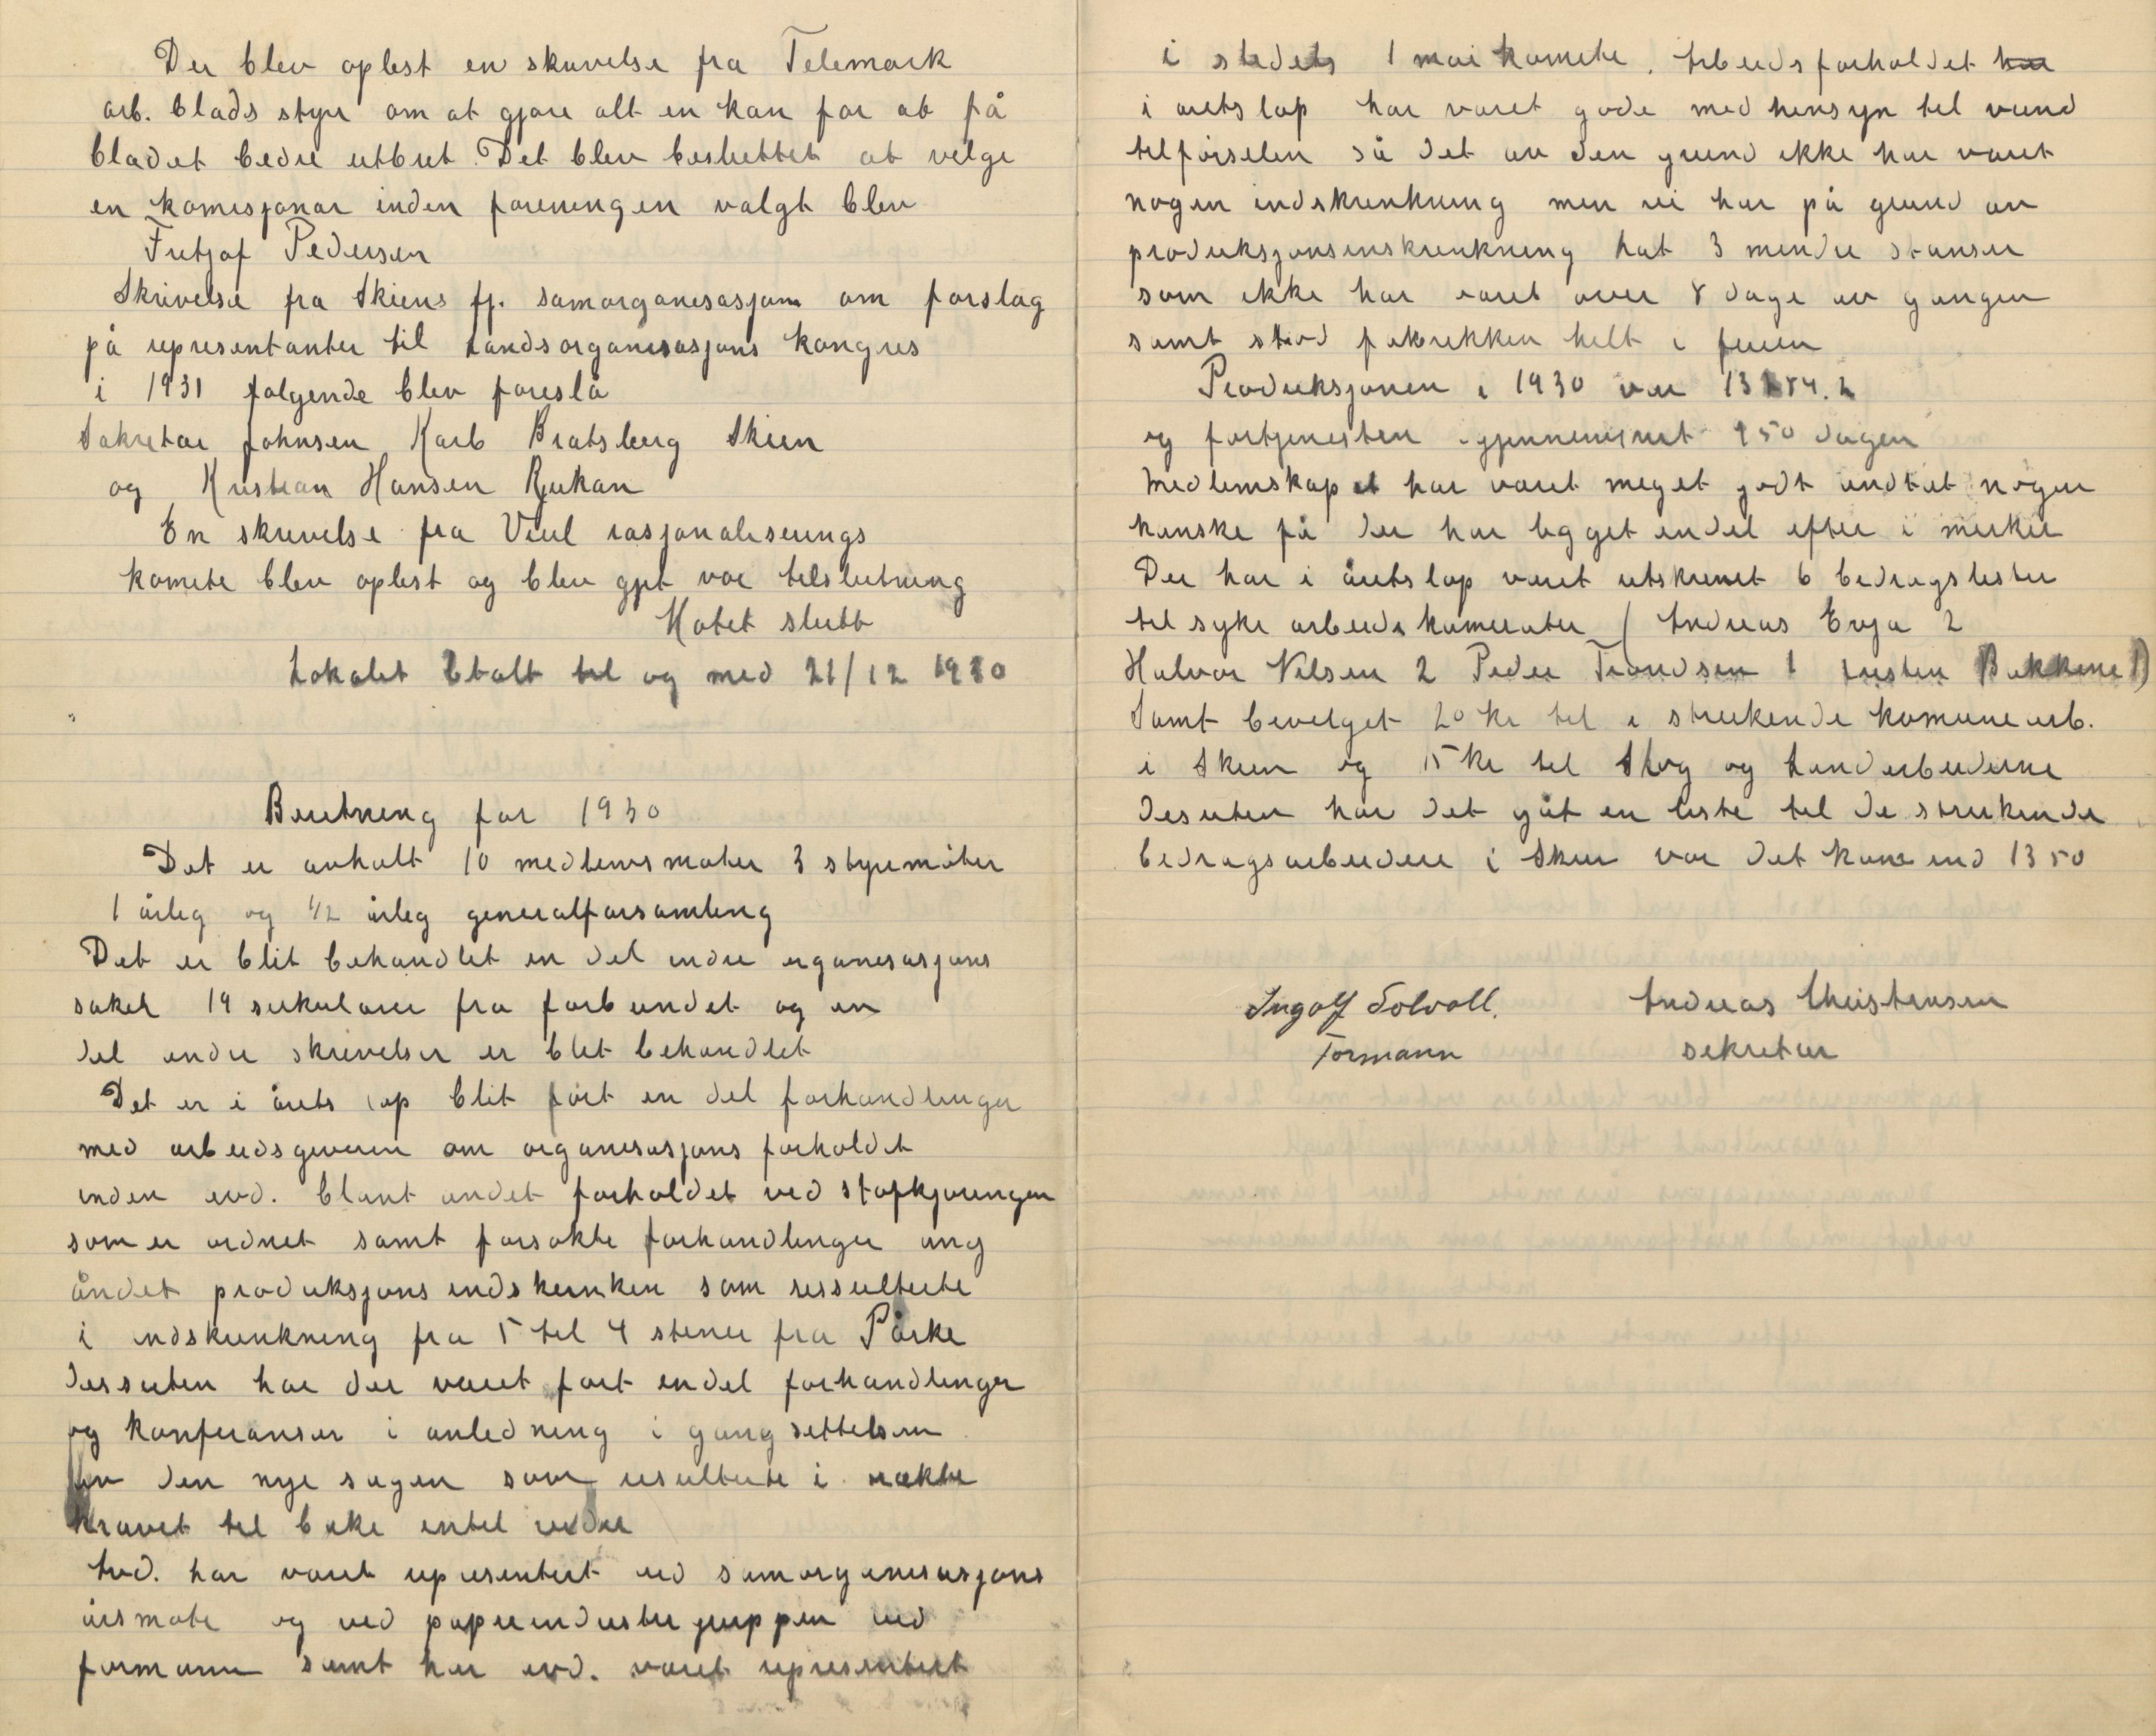 Der blev oplest en skrivelse fra Telemark
arb. blads styre om at gjøre alt en kan for at få
bladet bedre utbret. Det blev besluttet at velge
en komisjonær inden foreningen valgt blev
Fritjof Pedersen
Skrivelse fra Skiens fj. samorganisasjon om forslag
på representanter til Landsorganisasjons kongres
i 1931 følgende blev foreslå
Sakretær Johnsen Karb Bratsberg Skien
og Kristian Hansen Rjukan
En skrivelse fra Viul rasjonaliserings
komite blev oplest og blev gjit vor tilslutning
Møtet slutt
Lokalet Btalt til og med 21/12 1930
Beretning for 1930
Det er avholt 10 medlemsmøter 3 styremøter
1 årlig og 1/2 årlig generalforsamling
Det er blit behandlet en del indre organisasjons
saker 19 sirkulærer fra forbundet og en
del andre skrivelser er blit behandlet
Det er i årets løp blit ført en del forhandlinger
med arbeidsgiveren om organisasjons forholdet
inden avd. blant andet forholdet ved stofkjøringen
som er ordnet samt forsøkte forhandlinger ang
åndet produksjons indskrenken som ressulterte
i indskrenkning fra 5 til 4 stener fra Påske
dessuten har der været ført endel forhandlinger
og konferanser i anledning i gang settelsen
av den nye sagen som resulterte i
kravet til bake intil vidre
Avd. har været representert ved samorganisasjons
årsmøte og ved papirindustri gruppen ved
formann samt har avd. været representert
i stedets 1 mai komite. Arbeidsforholdet har
i årets løp har været gode med hensyn til vand
tilførselen så det av den grund ikke har været
nogen indskrenkning men vi har på grund av
produksjonsinskrenkning hat 3 mindre stanser
som ikke har været over 8 dage av gangen
samt stod fabrikken helt i ferien
Produksjonen i 1930 var
og fortjenesten gjennemsnit 950 dagen
Medlemskapet har været meget godt undtat nogen
kanske få der har ligget endel efter i merker
Der har i årets løp været utskrevet 6 bedragslister
til syke arbeidskamerater (Andreas Evja 2
Halvor Nilsen 2 Peder Trondsen 1 Bakkene 1)
Samt bevilget 20 kr til i streikende komunearb.
i Skien og 15 kr til Skog og Landarbeiderne
desuten har det gåt en liste til de streikende
bedragsarbeidere i Skien vor det kom ind 1350
Ingolf Solvoll. Andreas Christensen
Formann sekretær